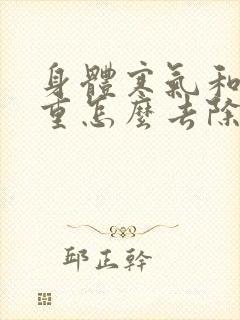 身體寒氣和
重怎麼去除
邱正幹